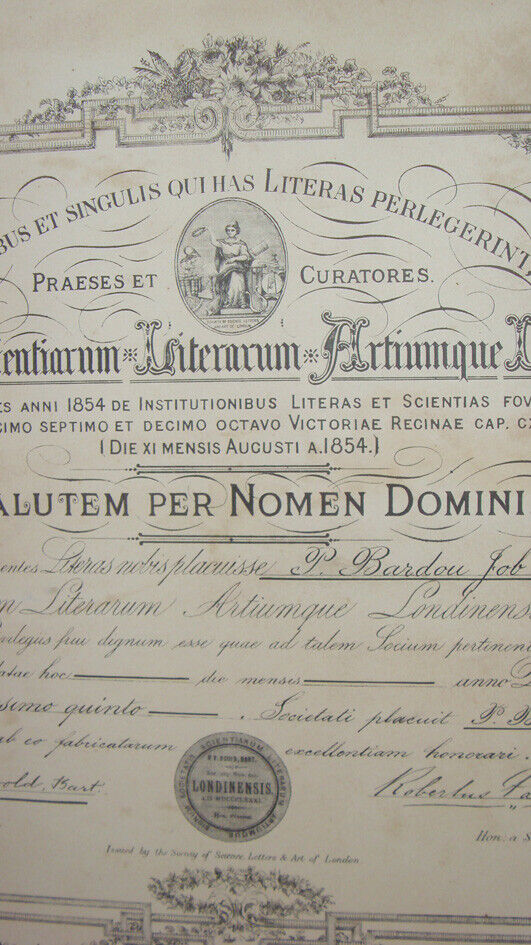 BUS ET SINGULIS QUI HAS LITERAS PERLEGERINT
PRAESES ET CURATORES.
entiarum Literarum Artiumque
ES ANNI 1854 DE INSTITUTIONIBUS LITERAS ET SCIENTIAS FOV
CIMO SEPTIMO ET DECIMO OCTAVO VICTORIAE REGINAE CAP. C
(DIE XI MENSIS AUGUSTI A.1854.)
ALUTEM PER NOMEN DOMINI
entes Literas nobis placuisse P. Bardou Job
m Literarum Artiumque Londinens
legus frui dignum esse quae ad talem Socium pertinen
datae hoc die mensis anno
simo quinto . Societati placuit P. B
ab eo fabricatarum excellentiam honorari
old, Bart. Robertus
LONDINENSIS
Hon. a S
Issued by the Society of Science Letters & Art of London